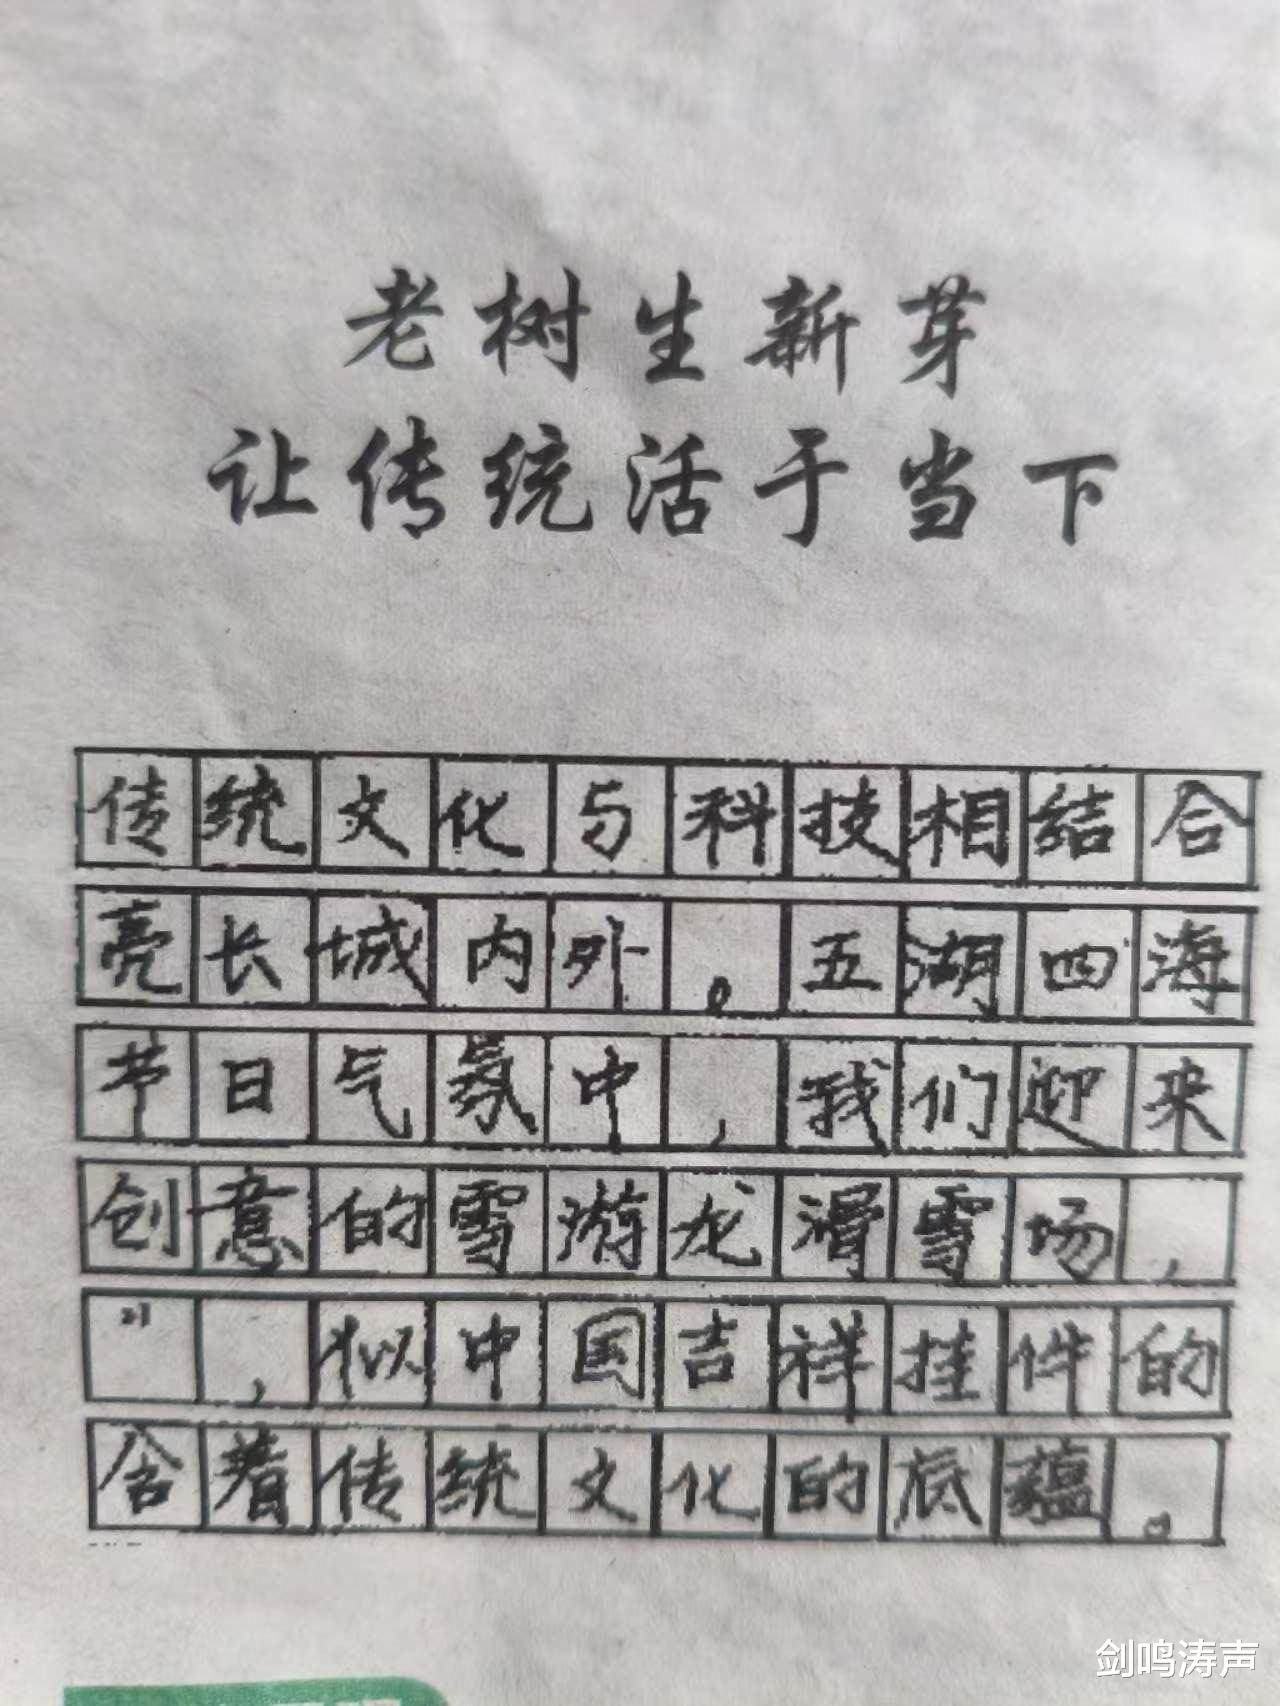 老树生新芽
让传统活于当下
传统文化与科技相结合
亮长城内外。五湖四海
节日气氛中,我们迎来
创意的雪游龙滑雪场,
",似中国吉祥挂件的
含着传统文化的底蕴。
剑鸣涛声